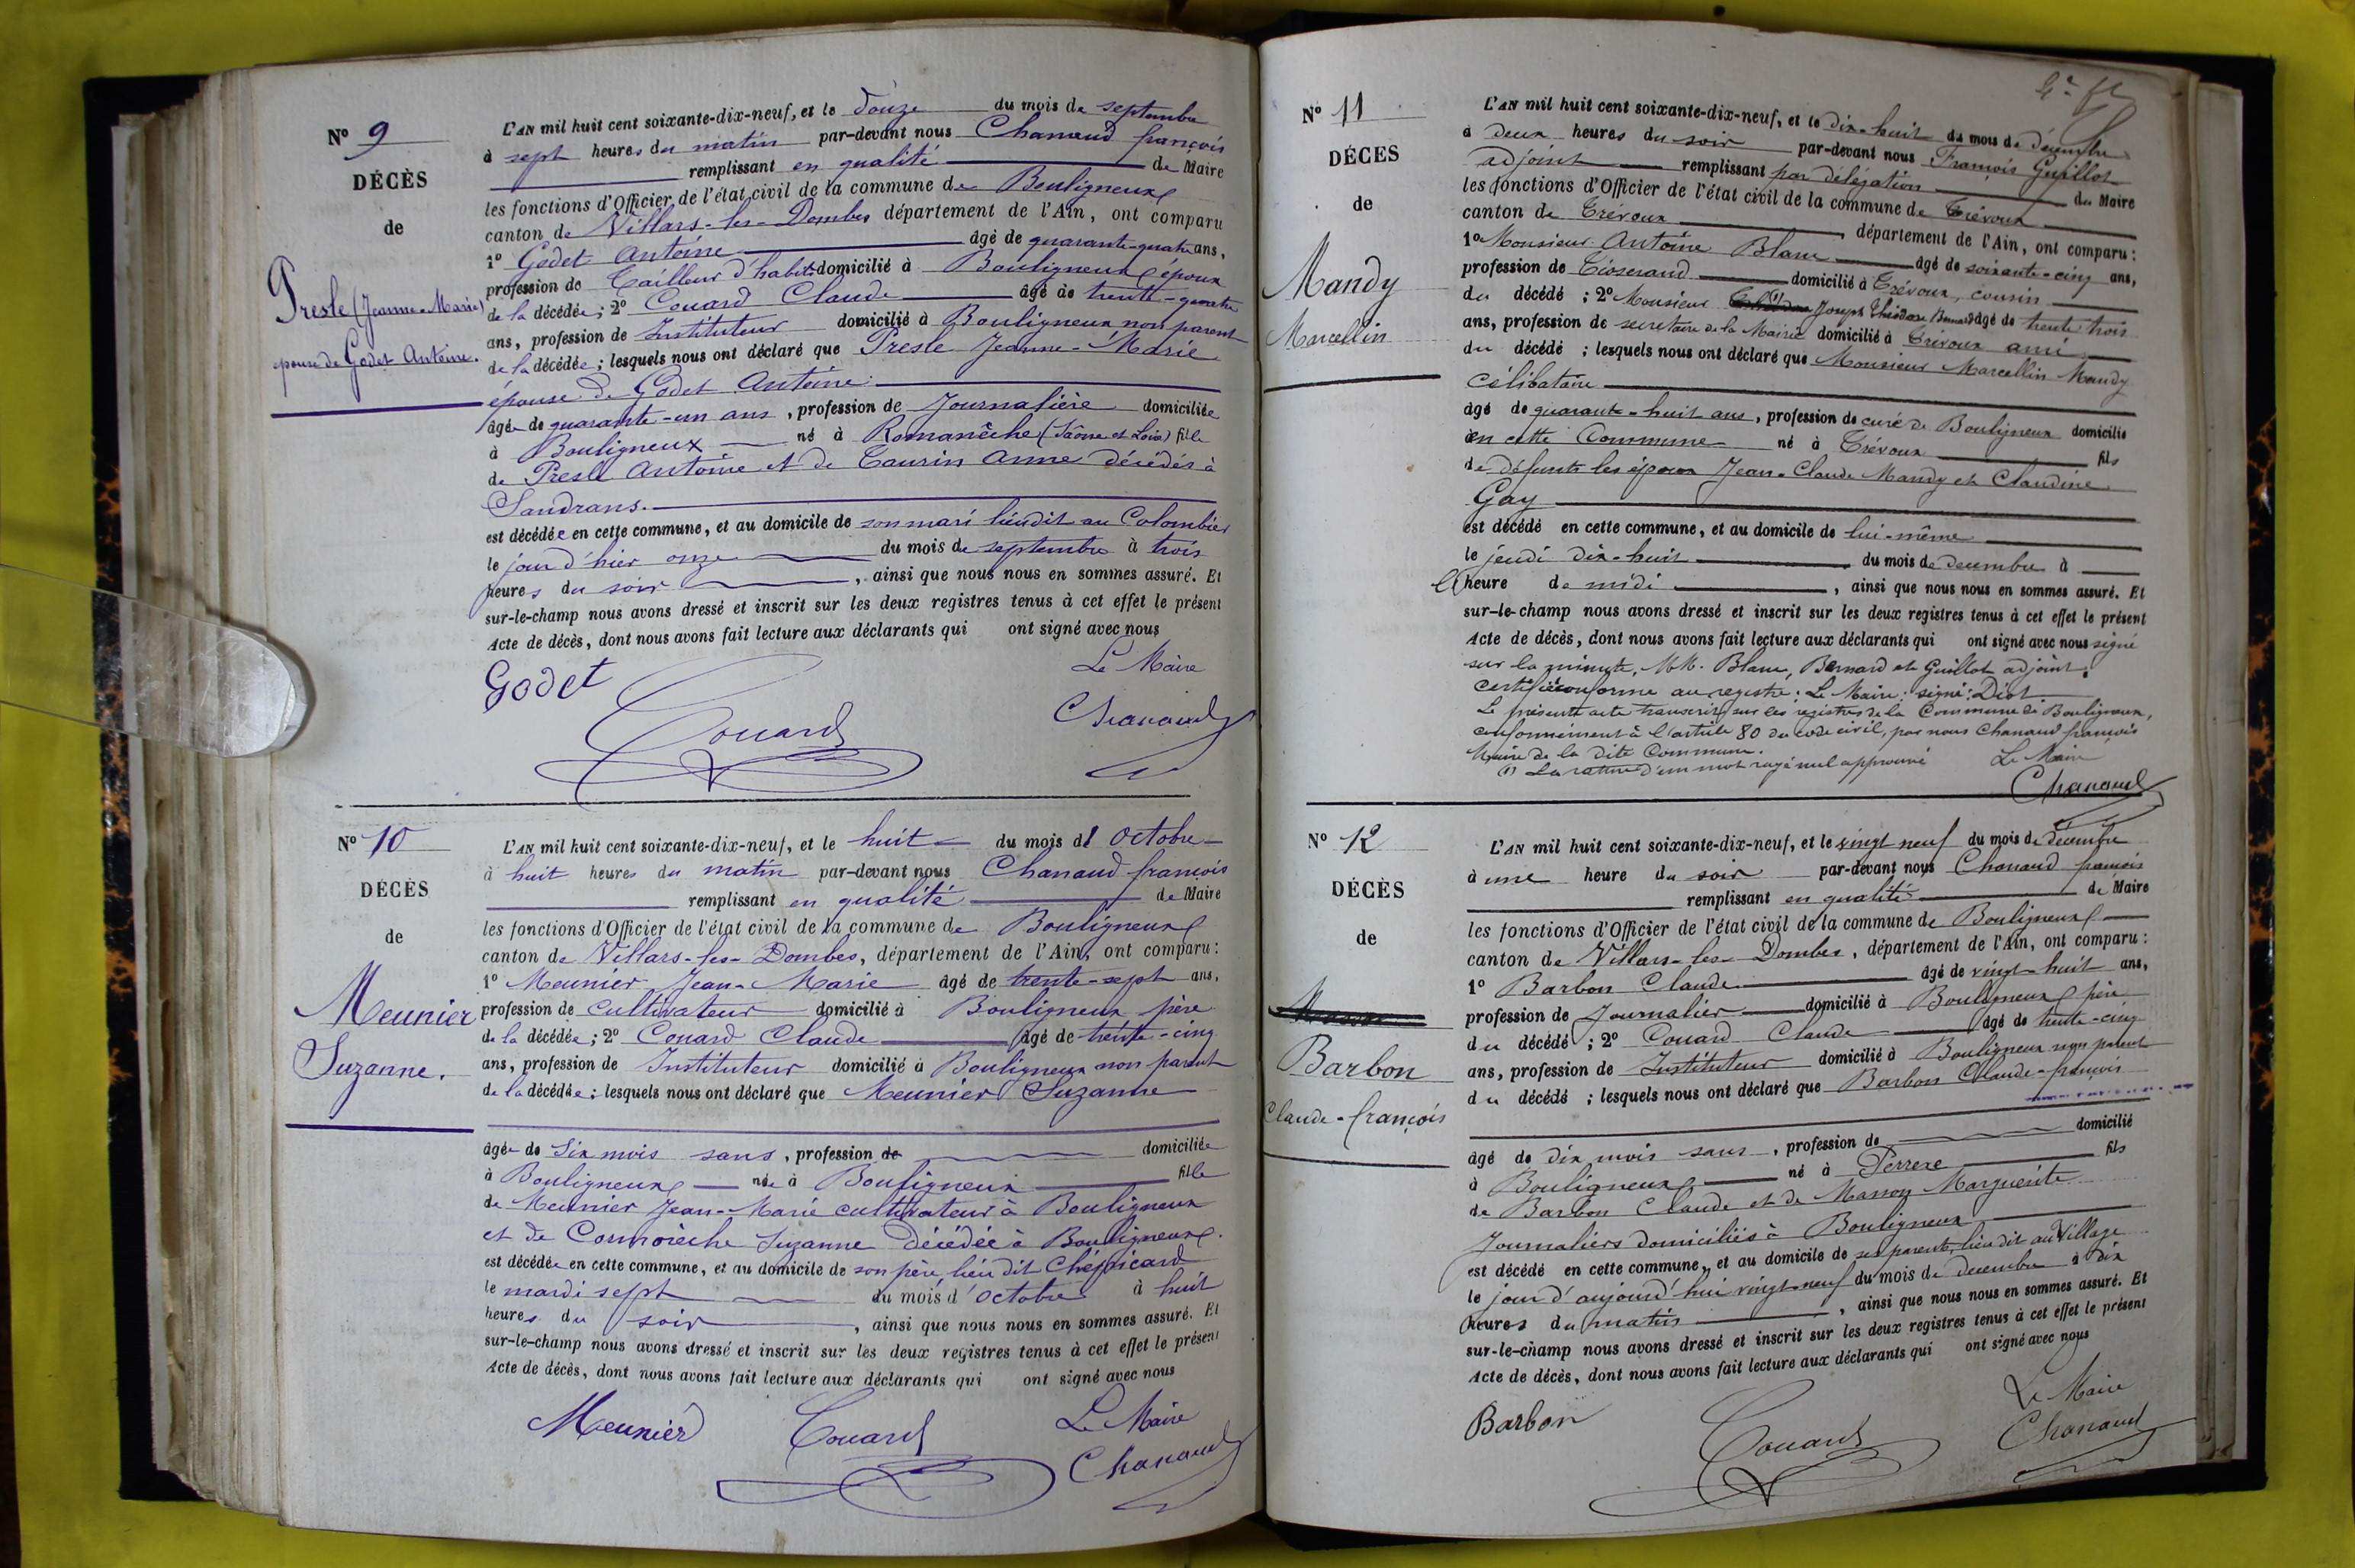 Nº 9
DÉCÈS
de
Presle (Jeanne-Marie)
épouse de Godet Antoine.
L'AN mil huit cent soixante-dix-neuf, et le douze du mois de septembre
à sept heures du matin par-devant nous Chanaud françois
remplissant en qualité de Maire
les fonctions d'Officier de l'état civil de la commune de Bouligneux
canton de Villars-les-Dombes département de l'Ain, ont comparu
1º Godet Antoine âgé de quarante-quatre ans,
profession de Tailleur d'habits domicilié à Bouligneux époux
de la décédée; 2º Couard Claude âgé de trente-quatre
ans, profession de Instituteur domicilié à Bouligneux non parent
de la décédée; lesquels nous ont déclaré que Presle Jeanne-Marie
épouse de Godet Antoine
âgée de quarante-un ans, profession de Journalière domiciliée
à Bouligneux né à Romanèche (Saône et Loire) fille
de Presle Antoine et de Taurin Anne décédés à
Sandrans.
est décédée en cette commune, et au domicile de son mari lieu dit au Colombier
le jour d'hier onze du mois de septembre à trois
heures du soir, ainsi que nous nous en sommes assuré. Et
sur-le-champ nous avons dressé et inscrit sur les deux registres tenus à cet effet le présent
Acte de décès, dont nous avons fait lecture aux déclarants qui ont signé avec nous
Le Maire
Godet Couard Chanaud
Nº 10
DÉCÈS
de
Meunier
Suzanne.
L'AN mil huit cent soixante-dix-neuf, et le huit du mois d' Octobre
à huit heures du matin par-devant nous Chanaud françois
remplissant en qualité de Maire
les fonctions d'Officier de l'état civil de la commune de Bouligneux
canton de Villars-les-Dombes, département de l'Ain, ont comparu:
1º Meunier Jean-Marie âgé de trente-sept ans,
profession de cultivateur domicilié à Bouligneux père
de la décédée; 2º Couard Claude âgé de trente-cinq
ans, profession de Instituteur domicilié à Bouligneux non parent
de la décédée; lesquels nous ont déclaré que Meunier Suzanne
âgée de Six mois sans, profession de domiciliée
à Bouligneux née à Bouligneux fille
de Meunier Jean-Marie cultivateur à Bouligneux
et de Cormorèche Suzanne Décédée à Bouligneux.
est décédée en cette commune, et au domicile de son père, lieu dit Chépicard
le mardi sept du mois d'octobre à huit
heures du soir, ainsi que nous nous en sommes assuré. Et
sur-le-champ nous avons dressé et inscrit sur les deux registres tenus à cet effet le présent
Acte de décès, dont nous avons fait lecture aux déclarants qui ont signé avec nous
Le Maire
Meunier Couard Chanaud
Nº 11
DÉCÈS
de
Mandy
Marcellin
L'AN mil huit cent soixante-dix-neuf, et le dix-huit du mois de décembre
à deux heures du soir par-devant nous François Guillot
adjoint remplissant par délégation du Maire
les fonctions d'Officier de l'état civil de la commune de Trévoux
canton de Trévoux, département de l'Ain, ont comparu:
1º Monsieur Antoine Blanc âgé de soixante-cinq ans,
profession de Tisserand domicilié à Trévoux, cousin
du décédé; 2º Monsieur (1) Joseph Théodore Bernard âgé de trente trois
ans, profession de secrétaire de la Mairie domicilié à Trévoux ami
du décédé; lesquels nous ont déclaré que Monsieur Marcellin Mandy
célibataire
âgé de quarante-huit ans, profession de curé de Bouligneux domicilié
en cette Commune né à Trévoux fils
de défunts les époux Jean-Claude Mandy et Claudine
Gay
est décédé en cette commune, et au domicile de lui-même
le jeudi dix-huit du mois de décembre à
l'heure de midi, ainsi que nous nous en sommes assuré. Et
sur-le-champ nous avons dressé et inscrit sur les deux registres tenus à cet effet le présent
Acte de décès, dont nous avons fait lecture aux déclarants qui ont signé avec nous signé
sur la minute, MM. Blanc, Bernard et Guillot adjoint.
Certifié conforme au registre: Le Maire: signé: Diot
Le présent acte transcrit sur les registres de la Commune de Bouligneux,
conformément à l'article 80 du code civil, par nous Chanaud françois
Maire de la dite Commune.
(1) La rature d'un mot rayé nul approuvé Le Maire
Chanaud
Nº 12
DÉCÈS
de
Barbon
Claude-françois
L'AN mil huit cent soixante-dix-neuf, et le vingt neuf du mois de décembre
à une heure du soir par-devant nous Chanaud françois
remplissant en qualité de Maire
les fonctions d'Officier de l'état civil de la commune de Bouligneux
canton de Villars-les-Dombes, département de l'Ain, ont comparu:
1º Barbon Claude âgé de vingt-huit ans,
profession de Journalier domicilié à Bouligneux père
du décédé; 2º Couard Claude âgé de trente-cinq
ans, profession de Instituteur domicilié à Bouligneux non parent
du décédé; lesquels nous ont déclaré que Barbon Claude-françois
âgé de dix mois sans, profession de domicilié
à Bouligneux né à Perrex fils
de Barbon Claude et de Masson Marguerite
Journaliers domiciliés à Bouligneux
est décédé en cette commune, et au domicile de ses parents, lieu dit au Village
le jour d'aujourd'hui vingt-neuf du mois de décembre à dix
heures du matin, ainsi que nous nous en sommes assuré. Et
sur-le-champ nous avons dressé et inscrit sur les deux registres tenus à cet effet le présent
Acte de décès, dont nous avons fait lecture aux déclarants qui ont signé avec nous
Le Maire
Barbon Couard Chanaud